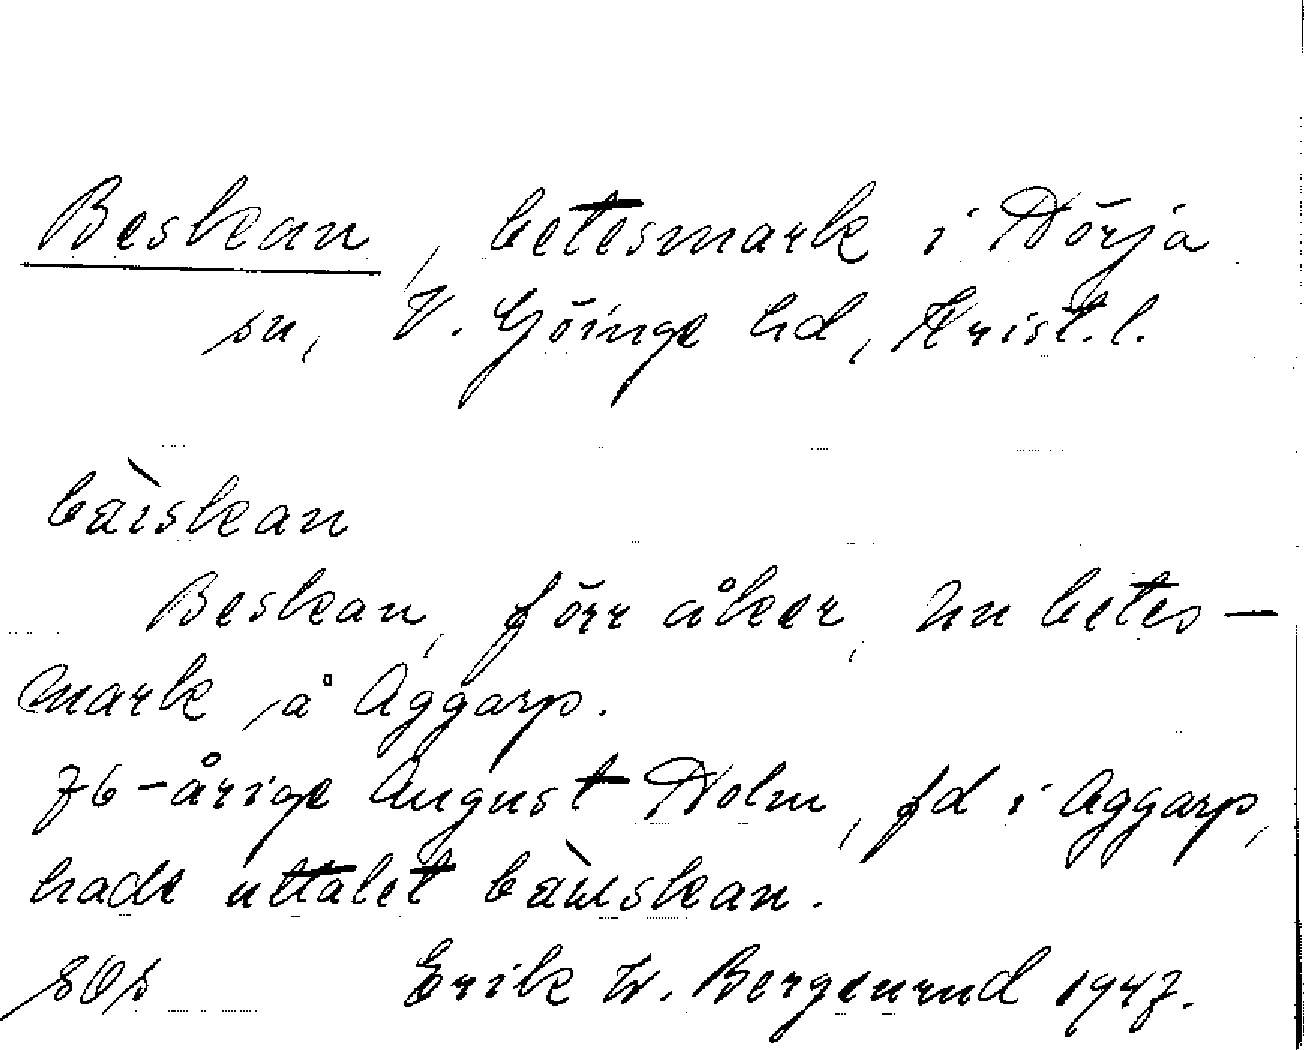 Beskan, betesmark i Nörja
sn, V. Göinge hd, Krist.l.
bàiskan
Beskan, förr åker, nu betes-
mark på Aggarp.
76-årige August Holm, fd i Aggarp,
hade uttalet
Erik W. Bergenrud 1947.